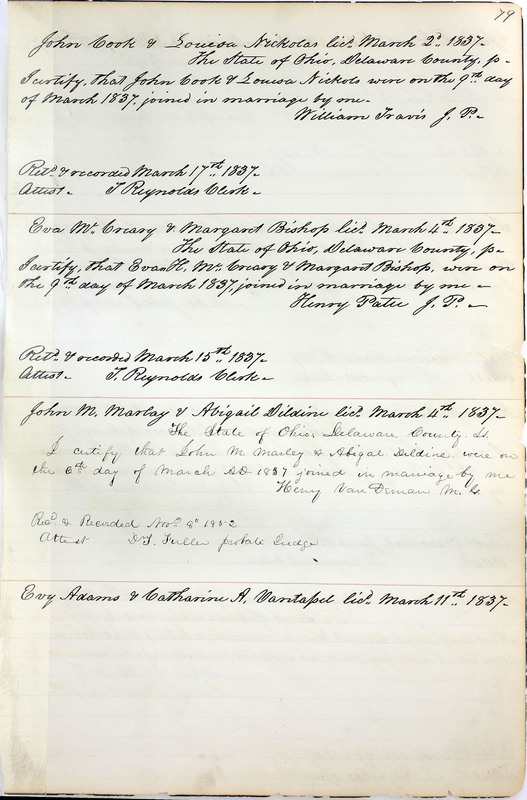 79
John Cook & Louisa Nickolas licd. March 2d. 1837-
The State of Ohio, Delaware County, p-
I certify, that John Cook & Louisa Nickols were on the 9th day
of March 1837, joined in marriage by me-
William Travis J. P.-
Retd. & recorded March 17th 1837-
Attest- T Reynolds Clerk-
Eva Mc. Creary & Margaret Bishop licd. March 4th. 1837-
The State of Ohio, Delaware County, p-
I certify, that Evan H, Mc. Creary & Margart Bishop, were on
the 9th day of March 1837, joined in marriage by me-
Henry Patee J. P.-
Retd. & recorded March 15th 1837-
Attest- T Reynolds Clerk-
John M. Marlay & Abigail Dildine licd. March 4th. 1837-
The State of Ohio, Delaware County, Ss.
I certify that John M Marley & Abigal Dildine were on
the 6th day of March AD 1837 joined in marriage by me
Henry Van Deman M. G.
Recd & Recorded Novr 9th 1852
Attest D.T. Fuller probate Judge
Evy Adams & Catharine A, Vantassel licd. March 11th. 1837-